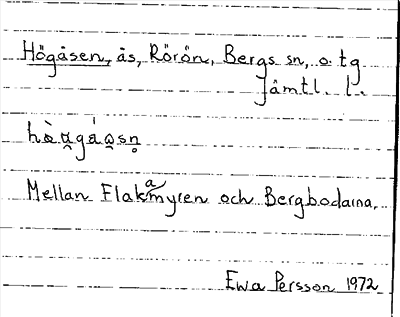 Högåsen, ås, Rörön, Bergs sn, o. tg
Jämtl. l.
hò̀a̯gá́o̯sn̥
Mellan Flakamyren och Bergbodarna.
Ewa Persson 1972